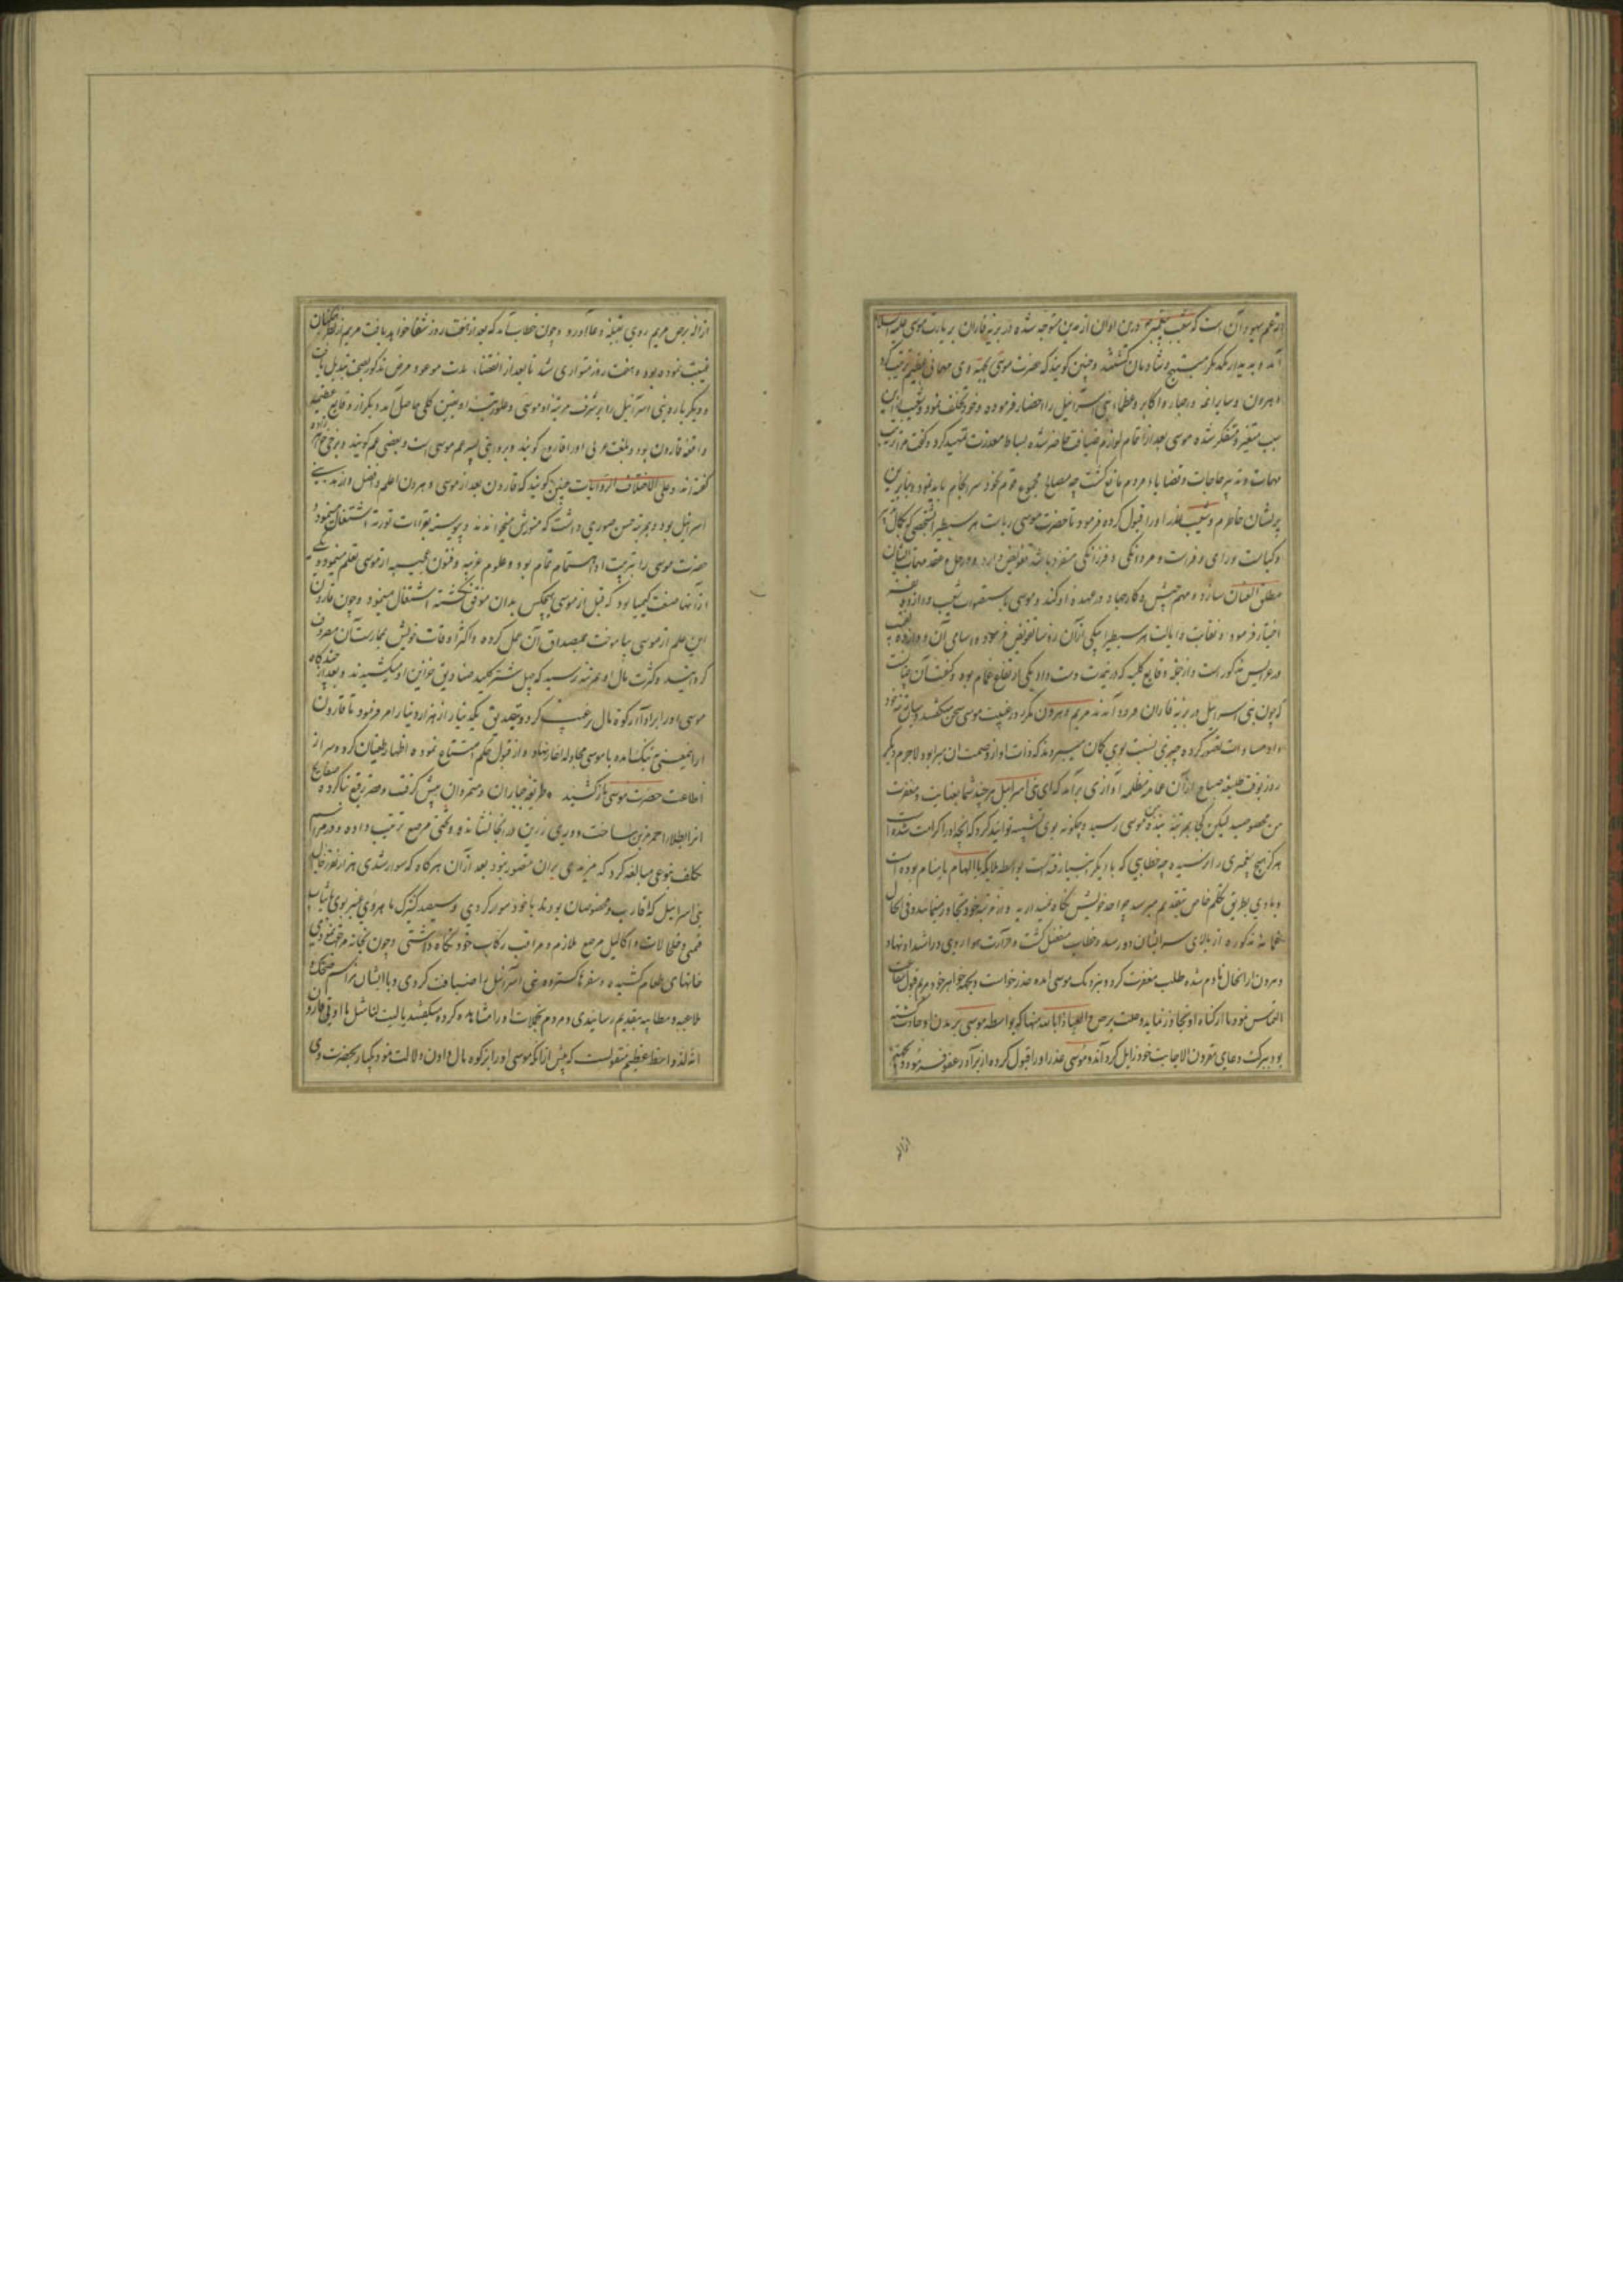 زعم یهود آن است که شعیب پیغمبر درین اوان از مدین متوجه شده در بریه فاران بزیارت موسی علیه السلام
آمد و به دیدار یکدیگر مبتهج و شادمان گشتند و چنین گویند که حضرت موسی بجهة وی مهمانی عظیم ترتیب کرد
و هرون و سایر ائمه و احبار و اکابر و عظماء بنی اسرائیل را احضار فرموده و خود تخلف نمود و شعیب ازین
سبب متغیر و متفکر شده موسی بعد از اتمام لوازم ضیافت حاضر شده بساط معذرت تمهید کرد و گفت
مهمات و تدبیر حاجات و قضایاء مردم مانع گشت چه مصالح مجموع قوم بخود سرانجام باید نمود و بنابرین
پریشان خاطرم و شعیب عذر او را قبول کرده فرمود تا حضرت موسی ریاست هر سبط را بشخصی که بکمال
و کیاست و رای و فراست و مردانگی و فرزانگی متفرد باشد تفویض دارد و در حل و عقد مهمات ایشان
مطلق العنان سازد و مهم جیش و کار جهاد در عهده او کند و موسی باستصواب شعیب دوازده نقیب
اختیار فرمود و نقابت و ایالت هر سبط را بیکی از آن رؤسا تفویض فرمود و اسامی آن دوازده نقیب
در عرایس مذکور است و از جمله وقایع کلیه که در غیبت دست داد یکی ارتفاع غمام بود و کیفیت آن چنانست
که چون بنی اسرائیل در بریه فاران فرود آمدند مریم و هرون مکرر در غیبت موسی سخن میگفتند و میان مرتبه خود
و او مساوات تصور کرده چیزی نسبت بوی گمان میبردند که ذات او از وصمت آن مبرا بود لاجرم دیگر
روز بوقت طلیعه صباح از آن غمام مظله آوازی برآمد که ای بنی اسرائیل هر چند شما بعنایت و مغفرت
من مخصوصید لیکن کجا بمرتبه بنده من موسی رسید و چگونه بوی تشبه توانید کرد که آنچه او را کرامت شده است
هرگز هیچ پیغمبری را نرسیده چه خطابی که با دیگر انبیا رفته است بواسطه ملایکه یا الهام یا منام بوده است
و با وی بطریق تکلم خاص بتقدیم میرسد چرا حد خویش نگاه نمیدارید و از مرتبه خود تجاوز مینمایید و فی الحال
غمامه مذکوره از بالای سر ایشان دور شد و خطاب منفصل گشت و حرارت هوا روی در اشتداد نهاد
و هرون از آن حال نادم شده طلب مغفرت کرد و بنزدیک موسی آمده عذر خواست و بجهة خواهر خود مریم قبول شفاعت
التماس نمود تا از گناه او تجاوز نماید و علت برص العیاذ بالله منها که بواسطه موسی بر بدن او حادث گشته
بود ببرکت دعای مقرون الاجابت خود زایل گرداند و موسی عذر او را قبول کرده از برادر عفو فرمود و بجهة
ازاله
ازاله برص مریم روی بقبله دعا آورد و چون خطاب آمد که بعد از هفت روز شفا خواهد یافت مریم از نظر همگنان
غیبت نموده بود و هفت روز متواری شد تا بعد از انقضاء مدت موعود مرض مذکور بصحت تبدیل یافت
و دیگر باره بنی اسرائیل را بر شرف مرتبه او موسی و علو رتبت او یقین کلی حاصل آمد و دیگر از وقایع عظیمه
واقعه قارون بود و بلغت عربی او را قارح گویند و بروایتی پسر عم موسی است و بعضی عم گویند و برخی خواهرزاده
گفته اند و علی الاختلاف الروایات چنین گویند که قارون بعد از موسی و هرون اعلم و افضل و ازهد بنی
اسرائیل بود و بمرتبه حسن صوری داشت که منورش میخواندند و پیوسته بقراءت توریة اشتغال مینمود و
حضرت موسی را بتربیت او اهتمام تمام بود و علوم غریبه و فنون عجیبه از موسی تعلم مینمود و یکی
از آنها صنعت کیمیا بود که قبل از موسی هیچکس بدان موفق نگشته اشتغال مینمود و چون قارون
این علم از موسی بیاموخت بمصداق آن عمل کرده و اکثر اوقات خویش بممارست آن مصروف
گردانید و کثرت مال او بمرتبه رسید که چهل شتر کلید صنادیق خزاین او میکشیدند و بعد از چندگاه
موسی او را بر اداء زکوة مال ترغیب کرد و بتصدیق یک دینار از هزار دینار امر فرمود تا قارون
از این معنی بتنگ آمده با موسی مجادله آغاز نهاد و از قبول حکم امتناع نموده اظهار طغیان کرد و سر از
اطاعت حضرت موسی باز کشید و طریقه جباران و متمردان پیش گرفت و قصر رفیع بنا کرده صفایح
آنرا بطلاء احمر مزین ساخت و دری زرین در آنجا نشانده و تختی مرصع ترتیب داده و در مراسم
تکلف بنوعی مبالغه کرد که مزیدی بر آن متصور نبود بعد از آن هرگاه که سوار شدی هزار نفر از رجال
بنی اسرائیل که اقارب و مخصوصان بودند با خود سوار کردی و سیصد کنیزک ماهروی عنبر بوی با ثیاب
قیمتی و غلالات و اکالیل مرصع ملازم و مراقب رکاب خود نگاه داشتی و چون بخانه مراجعت نمودی
خانهای طعام کشیده و سفرها گسترده بنی اسرائیل را ضیافت کردی و با ایشان مراسم مضحکه و
ملاعبه و مطایبه بتقدیم رسانیدی و مردم تجملات او را مشاهده کرده میگفتند یا لیت لنا مثل ما اوتی قارون
انه لذو حظ عظیم منقولست که پیش از آنکه موسی او را بزکوة مال و اون دلالت نمود یکبار بحضرت وی